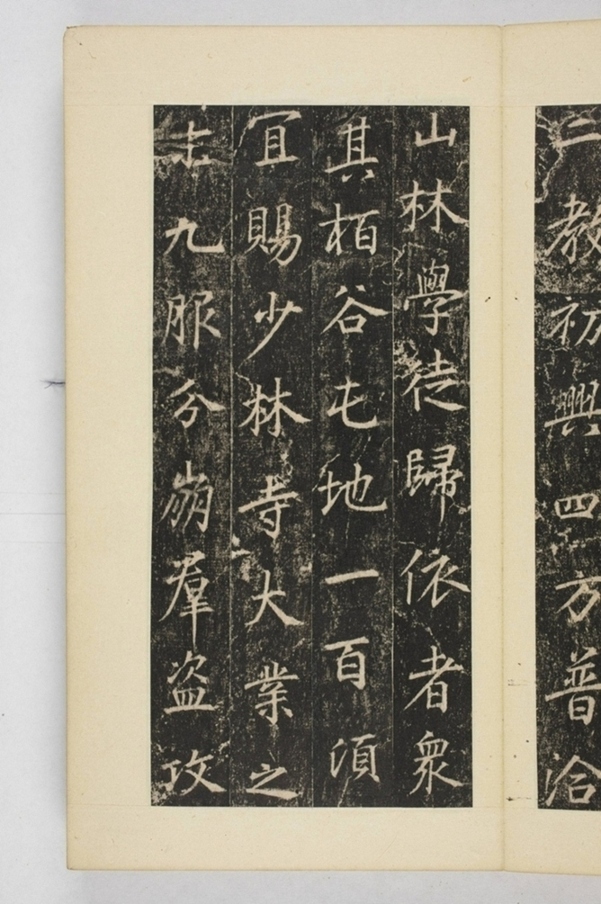 二教初興四方普洽
山林學徒歸依者眾
其栢谷屯地一百頃
宜賜少林寺大業之
末九服分崩羣盜攻